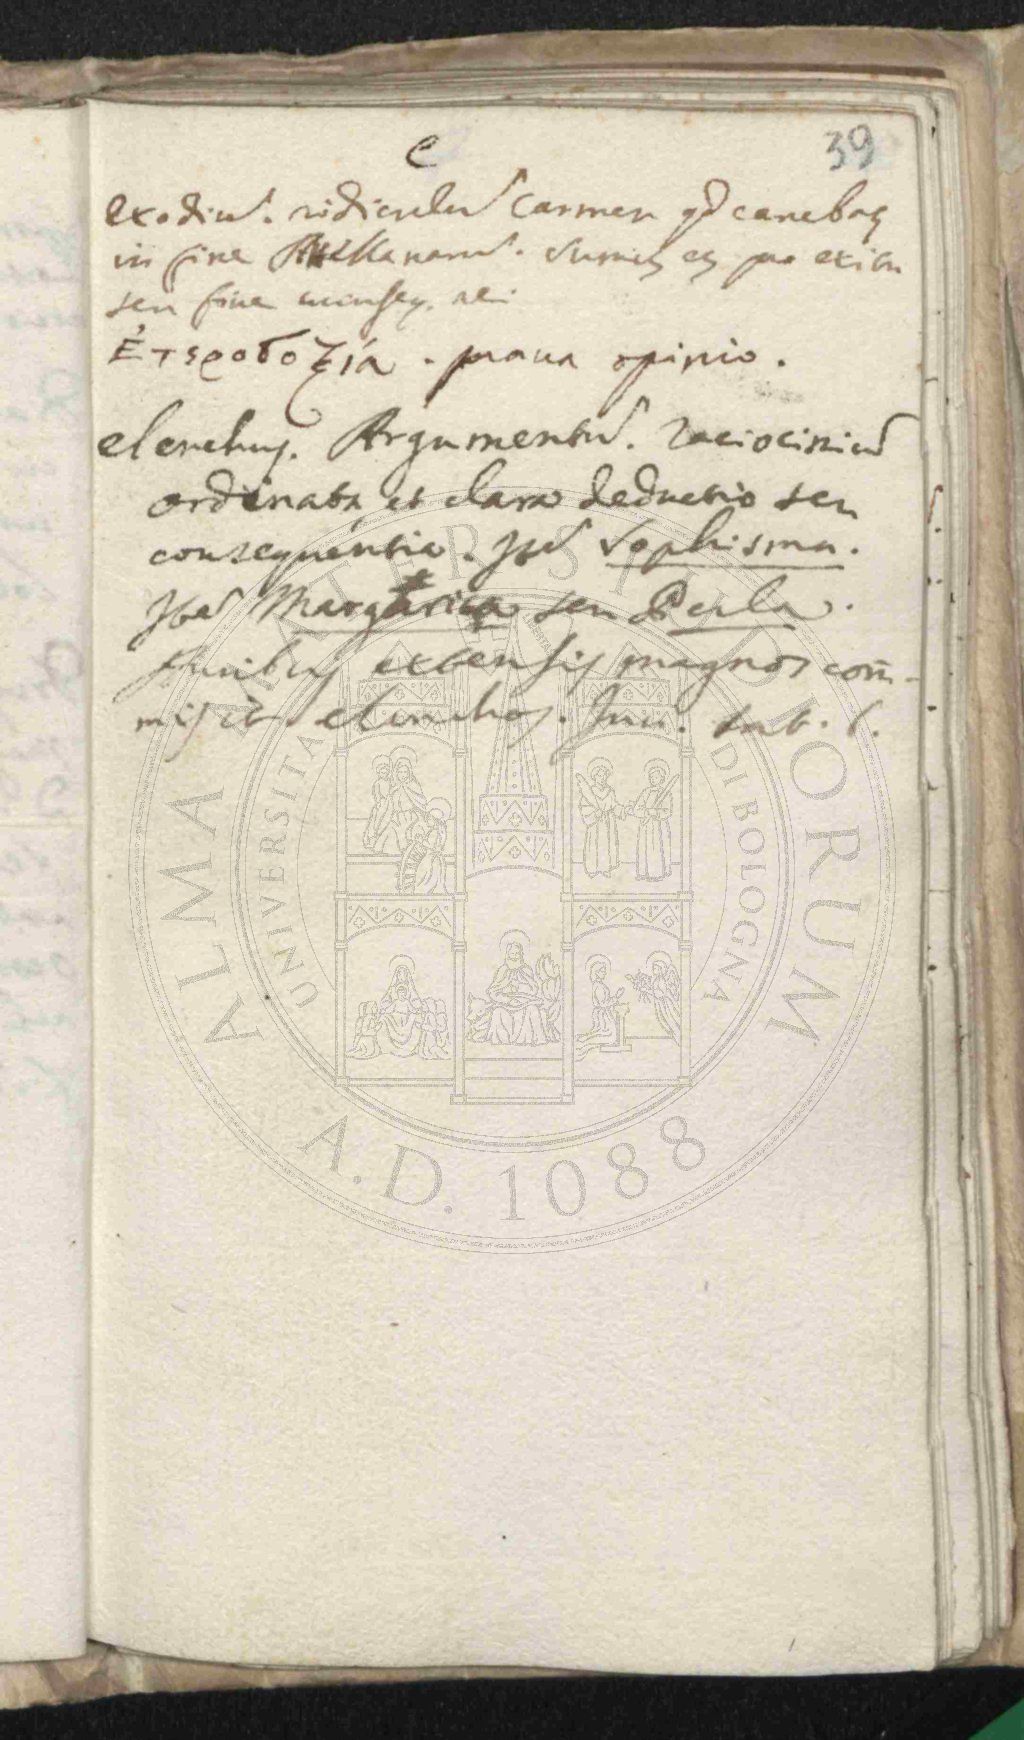 e
39
exodiũ. ridiculũ Carmen qd canebat̃
in fine Attellanarũ. Sumit̃ et̃ pro exitu
seu fine cuiusq. rei
Ἑτεροδοξία. praua opinio.
elenchus. Argumentũ. raciociniũ
ordinata, et clara deductio seu
consequentia. Itẽ Sophisma.
Itẽ Margarita seu Perla.
Auribus extensis magnos com̃-
misit elenchos. Juu. sat. 6.
ALMA MATER STUDIORUM
UNIVERSITÀ DI BOLOGNA
A.D. 1088